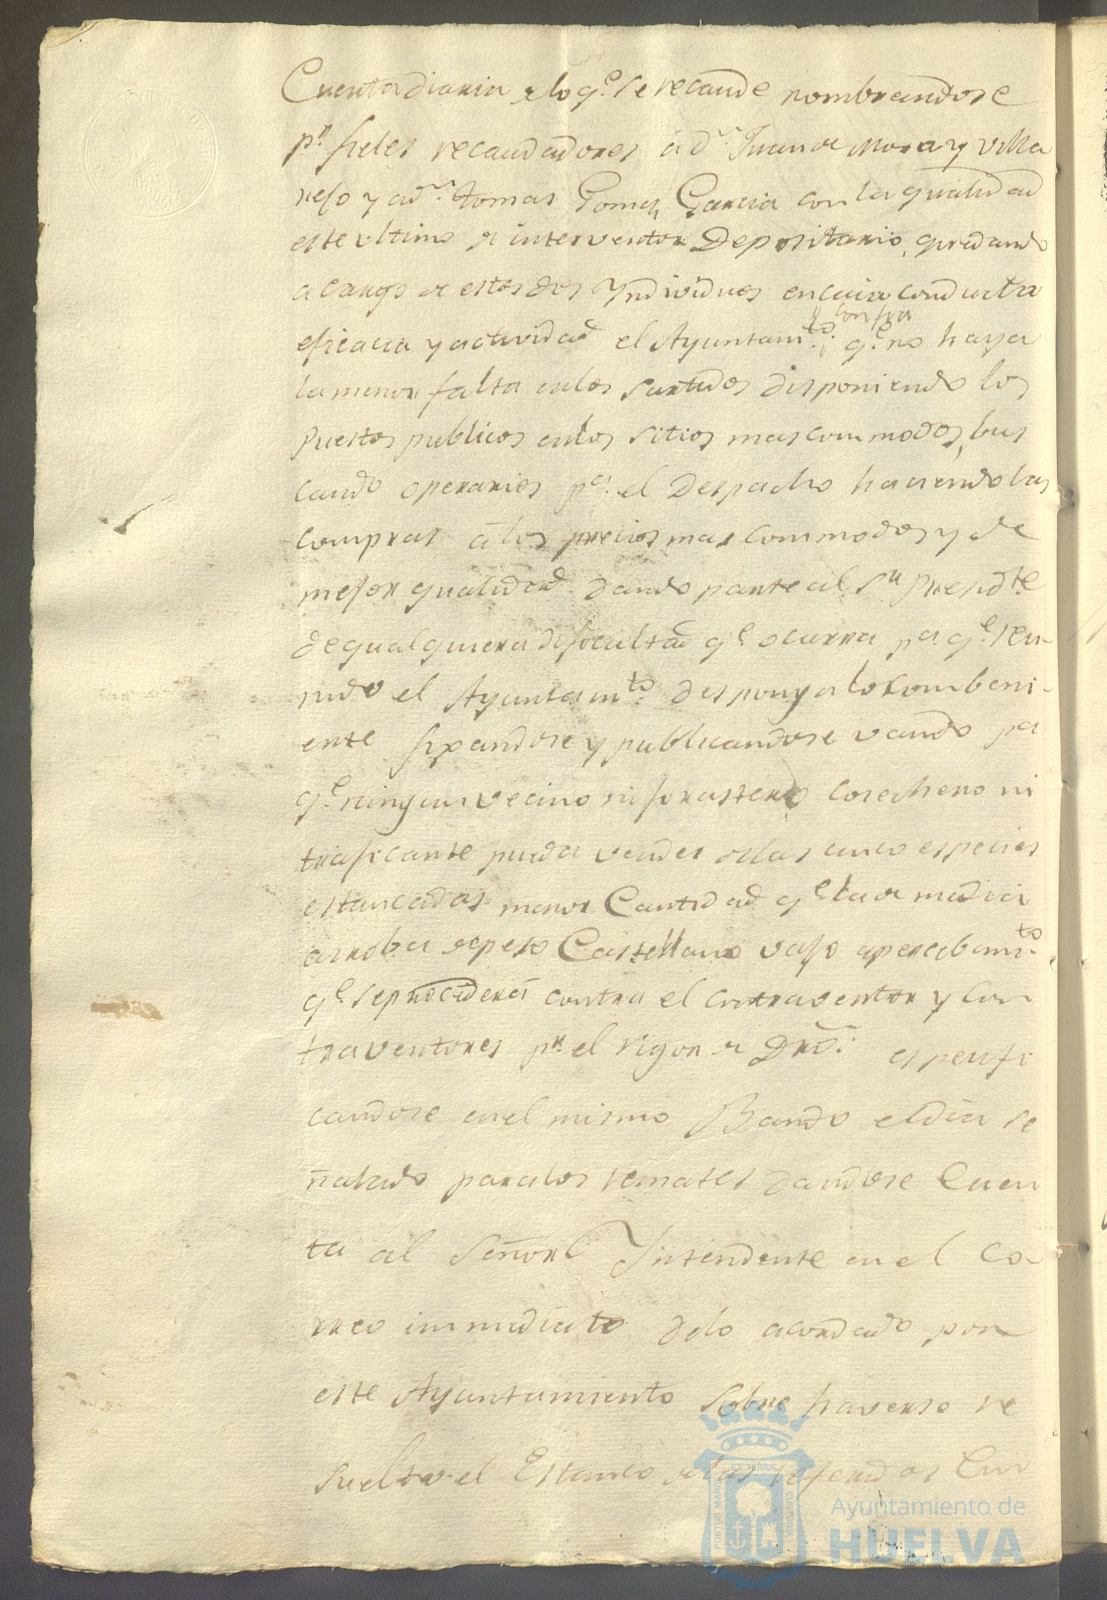 Cuenta diaria de lo q.e se recaude nombrandose
p.r fieles recaudadores á d.n Juan de Mora y Villa
rejo y a d.n tomas Gomez Garcia con la qualidad
este ultimo de interventor Depositario, quedando
a cargo de estos dos Yndividuos en cuia conducta
y confia
eficacia y actividad el Ayuntam.to q.e no haya
la menor falta en los surtidos disponiendo los
Puestos publicos en los sitios mas commodos, bus
cando operarios p.a el Despacho haciendo las
compras á los precios mas commodos y de
mejor qualidad dando parte al S.r Presid.te
de qualquiera dificultad q.e ocurra p.a q.e reu-
nido el Ayuntam.to disponga lo combeni-
ente fixandose y publicandose vando p.a
q.e ningun vecino ni forastero cosechero ni
traficante pueda vender de las cinco especies
estancadas menor Cantidad q.e la de media
arroba de peso Castellano vajo apercibimi.to
q.e se procederá contra el contraventor y con
traventores p.r el rigor de Dro. espesifi
candose en el mismo Bando el dia se
ñalado para los remates dandose Cuen
ta al Señor Yntendente en el Co-
rreo immediato de lo acordado por
este Ayuntamiento sobre haverse re
suelto el Estanco de las referidas Cin
PORTUS MARIS
ET TERRÆ
CUSTODIA
Ayuntamiento de
HUELVA